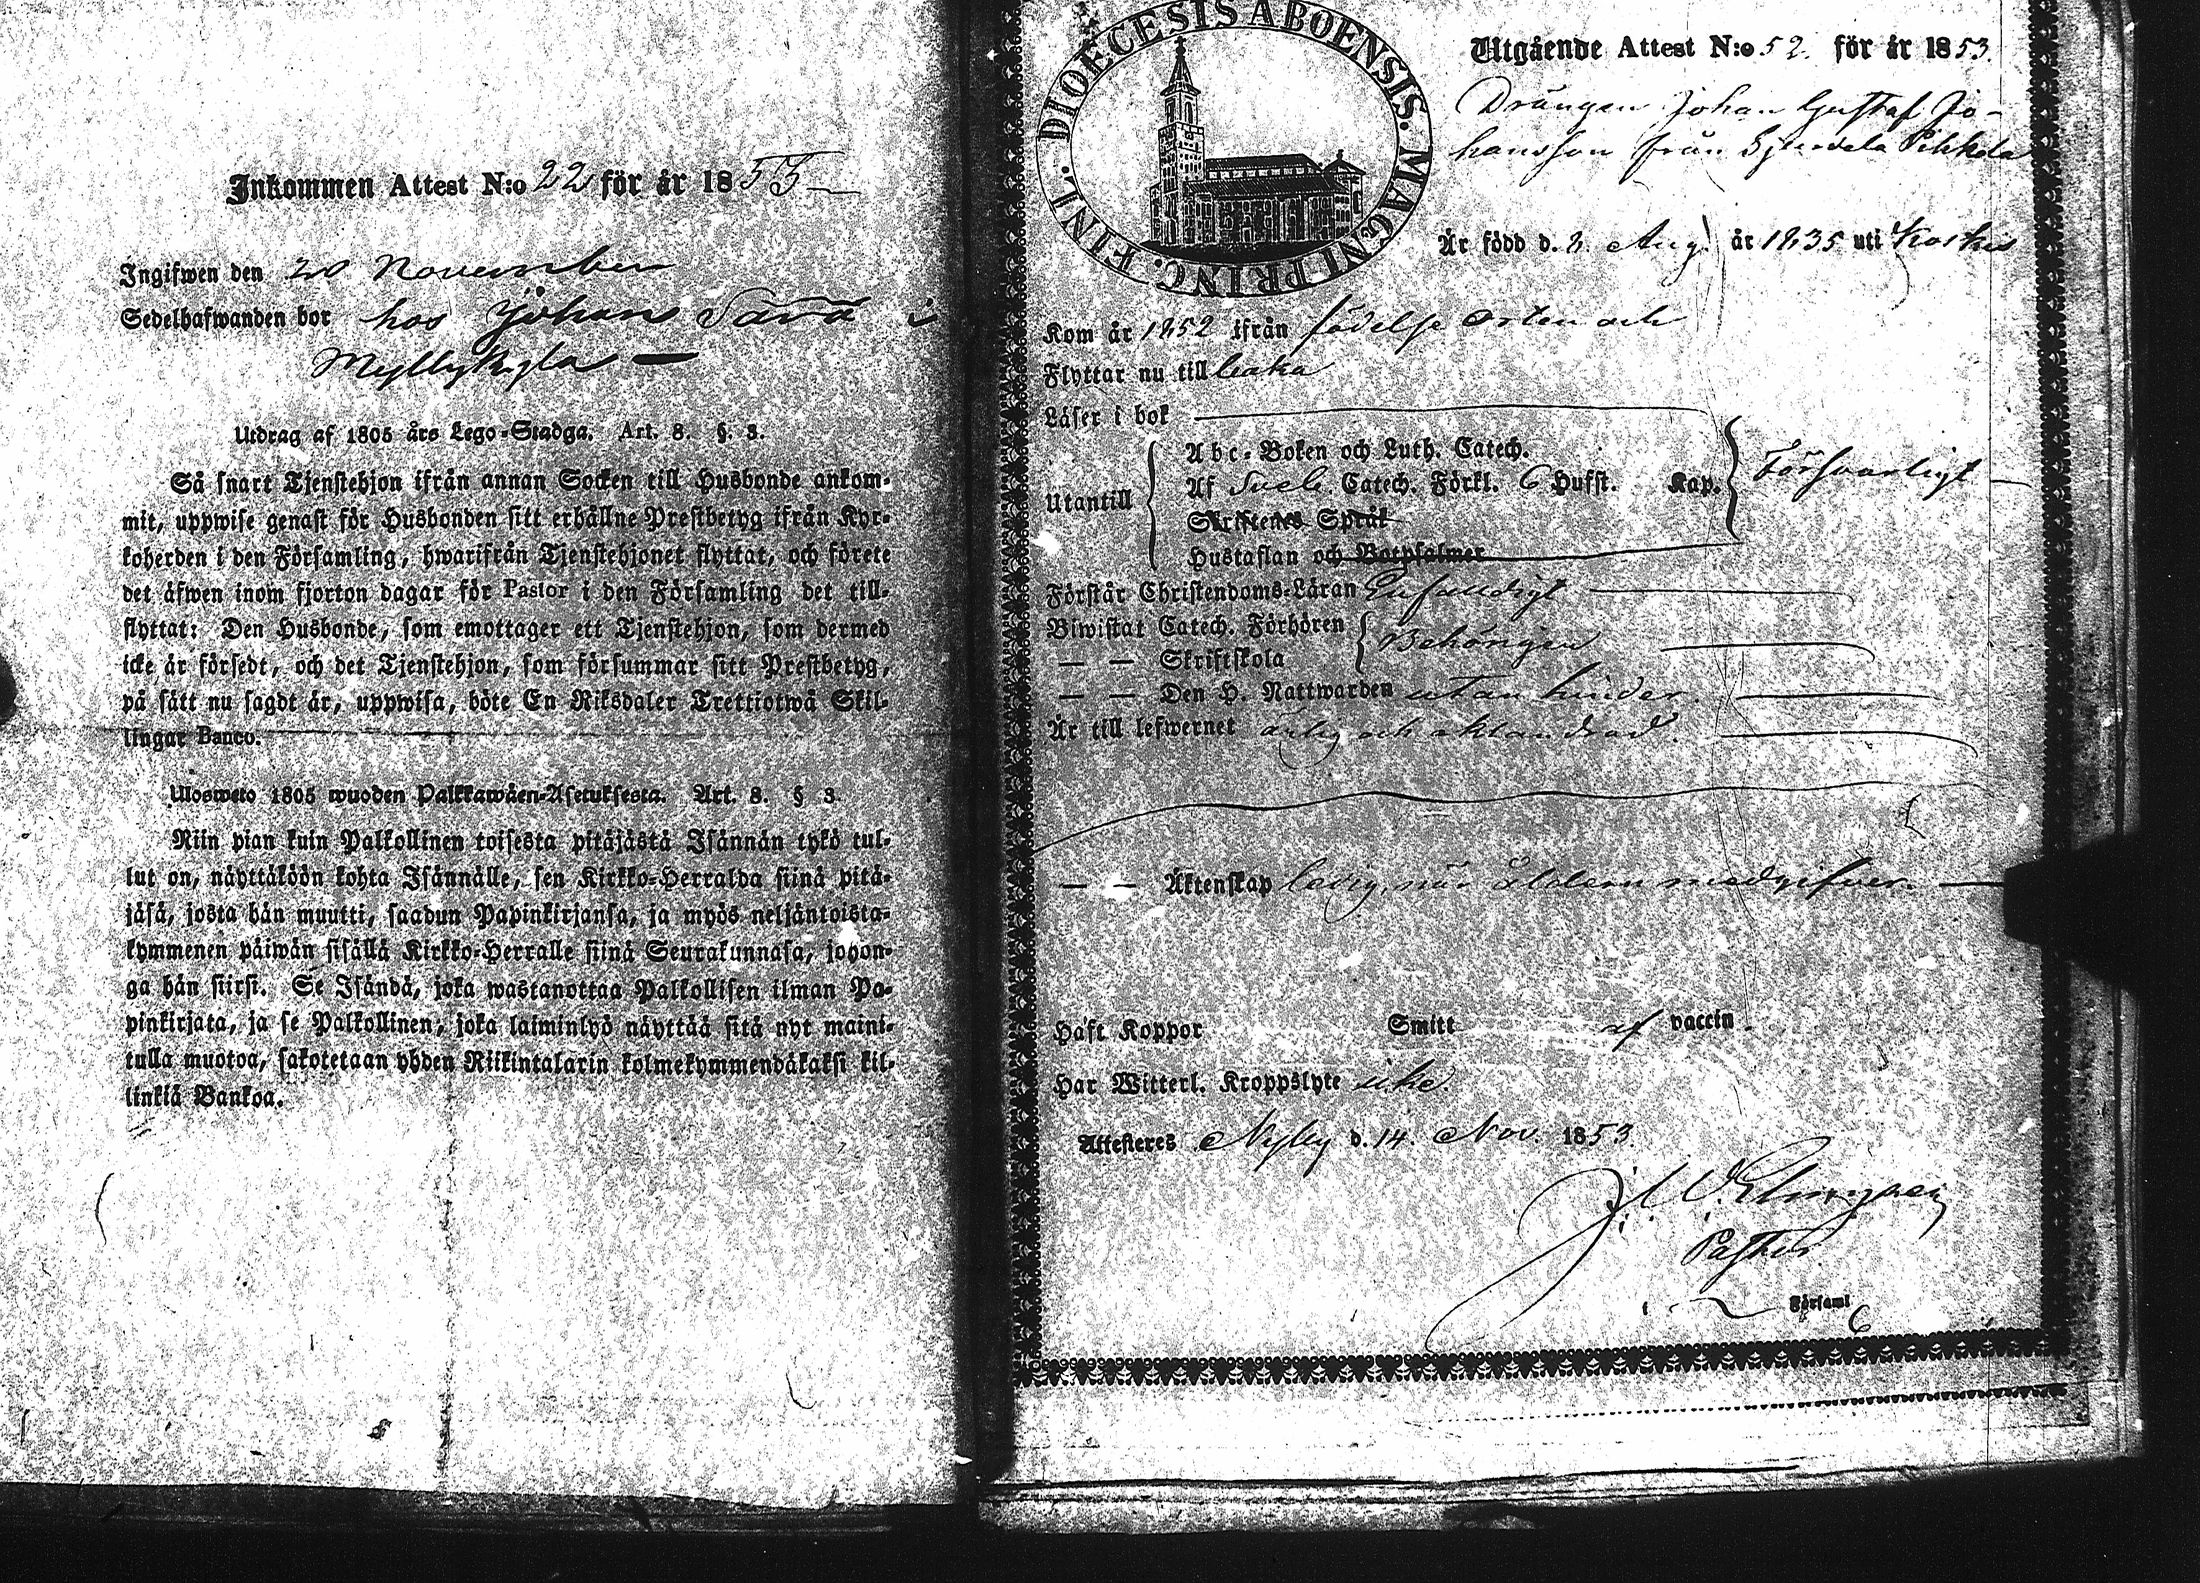 Inkommen Attest N:o 22 för år 1853
Ingifwen den 20 November
Sedelhafwanden bor hos Johans Sara i
Myllykylä
Utdrag af 1805 års Lego-Stadga. Art. 8. §. 3.
Så snart Tjenstehjon ifrån annan Socken till Husbonde ankom-
mit, uppwise genast för Husbonden sitt erhållne Prestbetyg ifrån Kyr-
koherden i den Församling, hwarifrån Tjenstehjonet flyttat, och förete
det äfwen inom fjorton dagar för Pastor i den Församling det till-
flyttat: Den Husbonde, som emottager ett Tjenstehjon, som dermed
icke är försedt, och det Tjenstehjon, som försummar sitt Prestbetyg,
på sätt nu sagdt är, uppwisa, böte En Riksdaler Trettiotwå Skil-
lingar Banco.
Ulosweto 1805 wuoden Palkkawäen-Asetuksesta. Art. 8. § 3.
Niin pian kuin Palkollinen toisesta pitäjästä Isännän tykö tul-
lut on, näyttäköön kohta Isännälle, sen Kirkko-Herralda siinä pitä-
jäsä, josta hän muutti, saadun Papinkirjansa, ja myös neljäntoista-
kymmenen päiwän sisällä Kirkko-Herralle siinä Seurakunnasa, johon-
ga hän siirsi. Se Isändä, joka wastanottaa Palkollisen ilman Pa-
pinkirjata, ja se Palkollinen, joka laiminlyö näyttää sitä nyt maini-
tulla muotoa, sakotetaan yhden Riikintalarin kolmekymmendäkaksi kil-
linkiä Bankoa.
DIOECESIS ABOENSIS. MAGNI PRINC. FINL.
Utgående Attest N:o 52 för år 1853.
Drängen Johan Gustaf Jo-
hansson från Pihkola
Är född d. 2. Aug. år 1835 uti Koskis
Kom år 1852 ifrån födelse orten och
Flyttar nu till
Läser i bok
Abc-Boken och Luth. Catech.
Utantill Af Sveb. Catech. Förkl. 6 Hufst. Kap. Försvarligt
Skriftenes Språk
Hustaflan och Botpsalmer
Förstår Christendoms-Läran Enfaldigt
Biwistat Catech. Förhören Behörigen
— — Skriftskola
— — Den H. Nattwarden utan hinder.
Är till lefwernet ärlig och oklandrad.
— — Äktenskap ledig, när åldern medgifver.
Haft Koppor Smitt af vaccin
Har Witterl. Kroppslyte icke.
Attesteres Nyby d. 14 Nov. 1853
Pastor
Församl